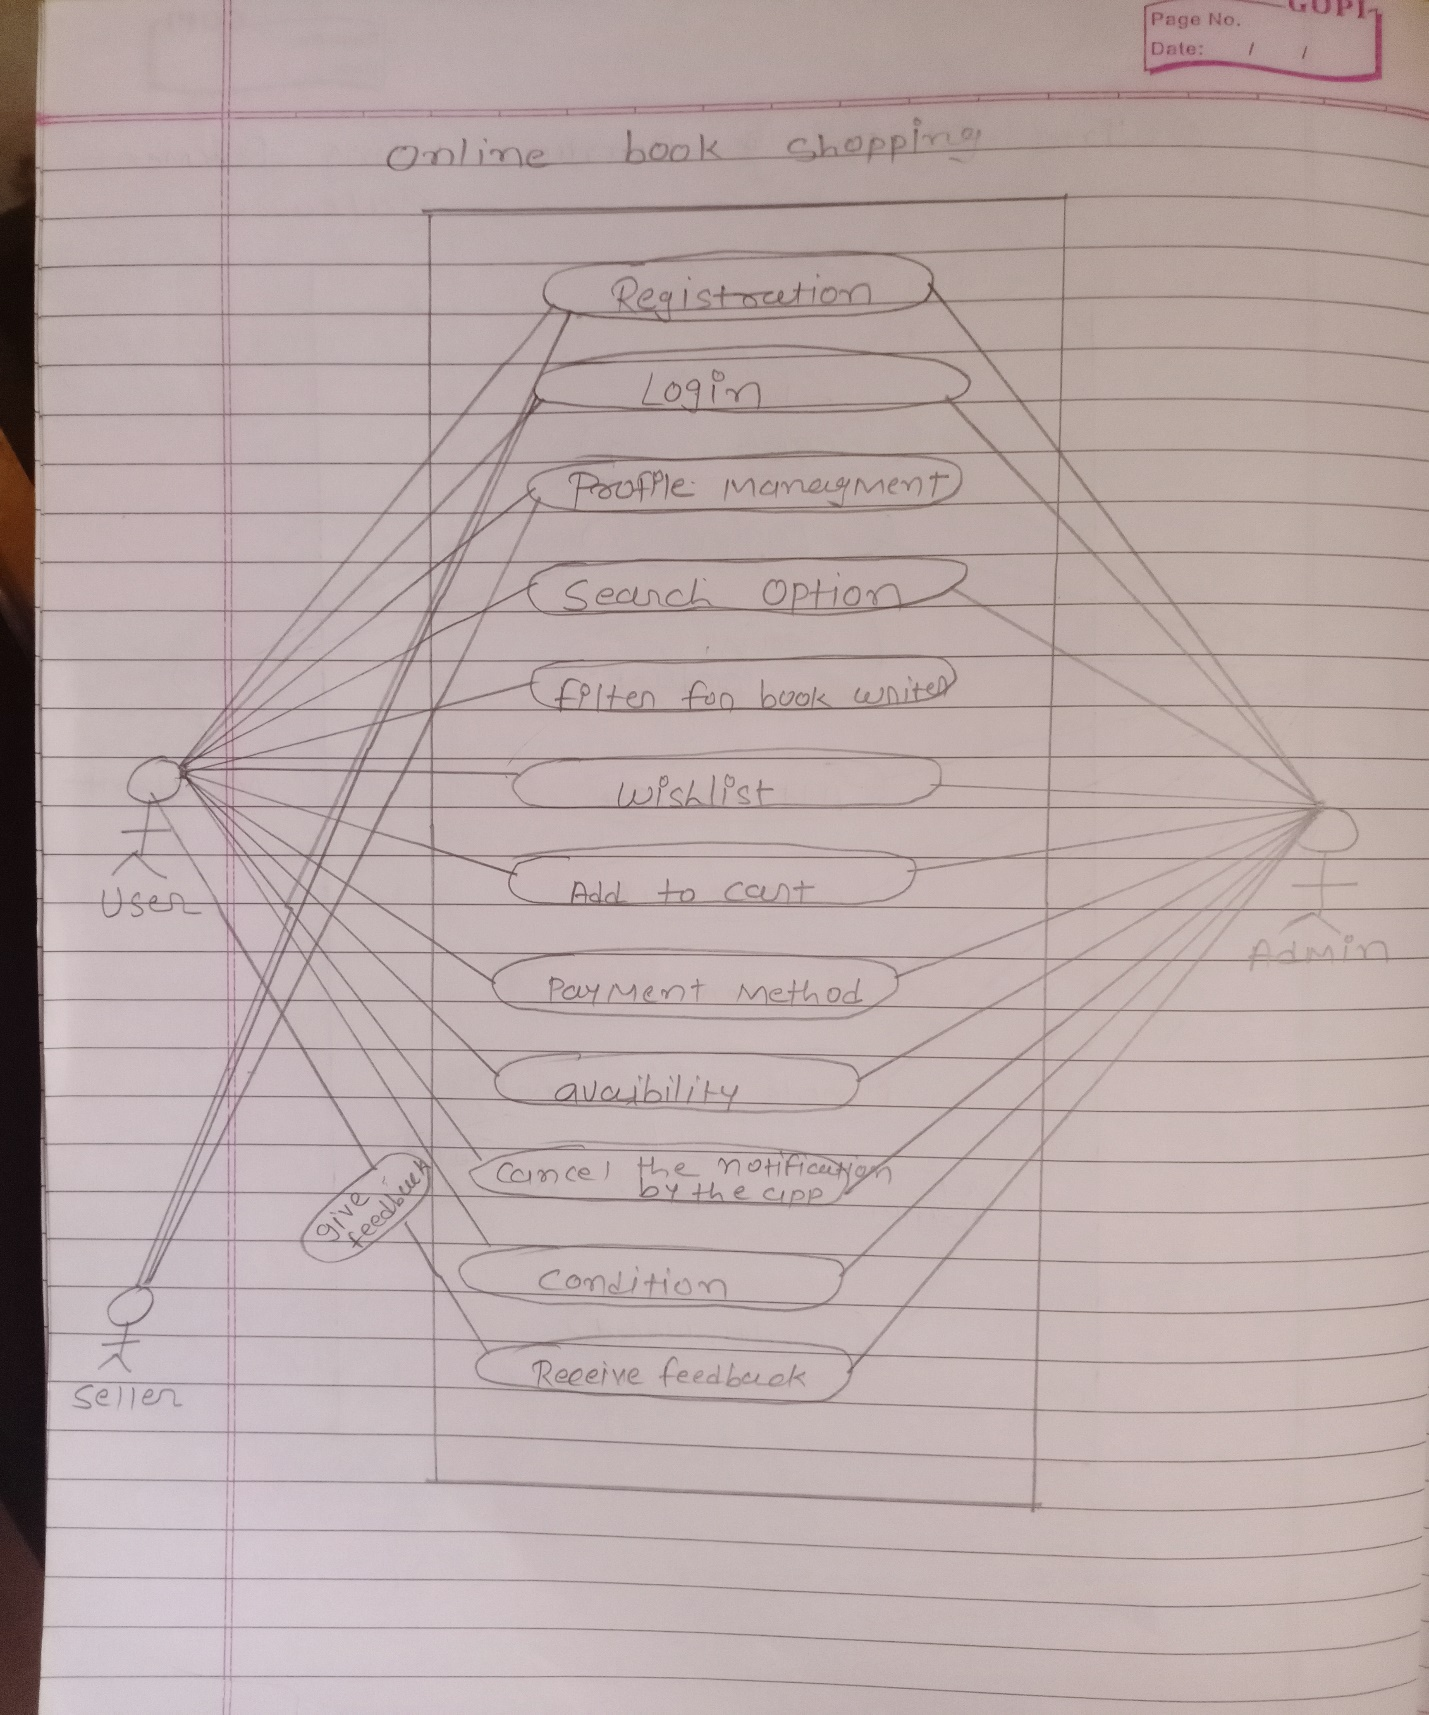 GOPI
Page No.
Date: / /
Online book shopping
Registration
Login
Profile managment
Search Option
filter for book writer
Wishlist
Add to cart
User
Admin
Payment Method
avaibility
Cancel the notification
by the app
give
feedback
Condition
Receive feedback
Seller